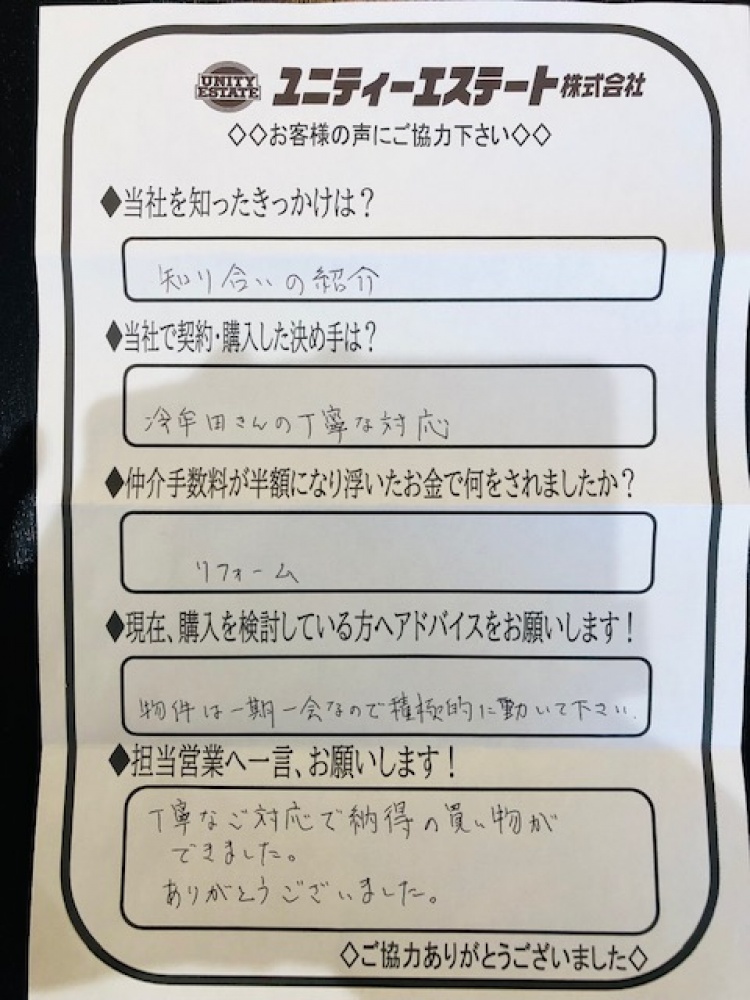 UNITY
ESTATE
ユニティーエステート株式会社
◇◇お客様の声にご協力下さい◇◇
◆当社を知ったきっかけは？
知り合いの紹介
◆当社で契約・購入した決め手は？
冷牟田さんの丁寧な対応
◆仲介手数料が半額になり浮いたお金で何をされましたか？
リフォーム
◆現在、購入を検討している方へアドバイスをお願いします！
物件は一期一会なので積極的に動いて下さい.
◆担当営業へ一言、お願いします！
丁寧なご対応で納得の買い物が
できました。
ありがとうございました。
◇ご協力ありがとうございました◇